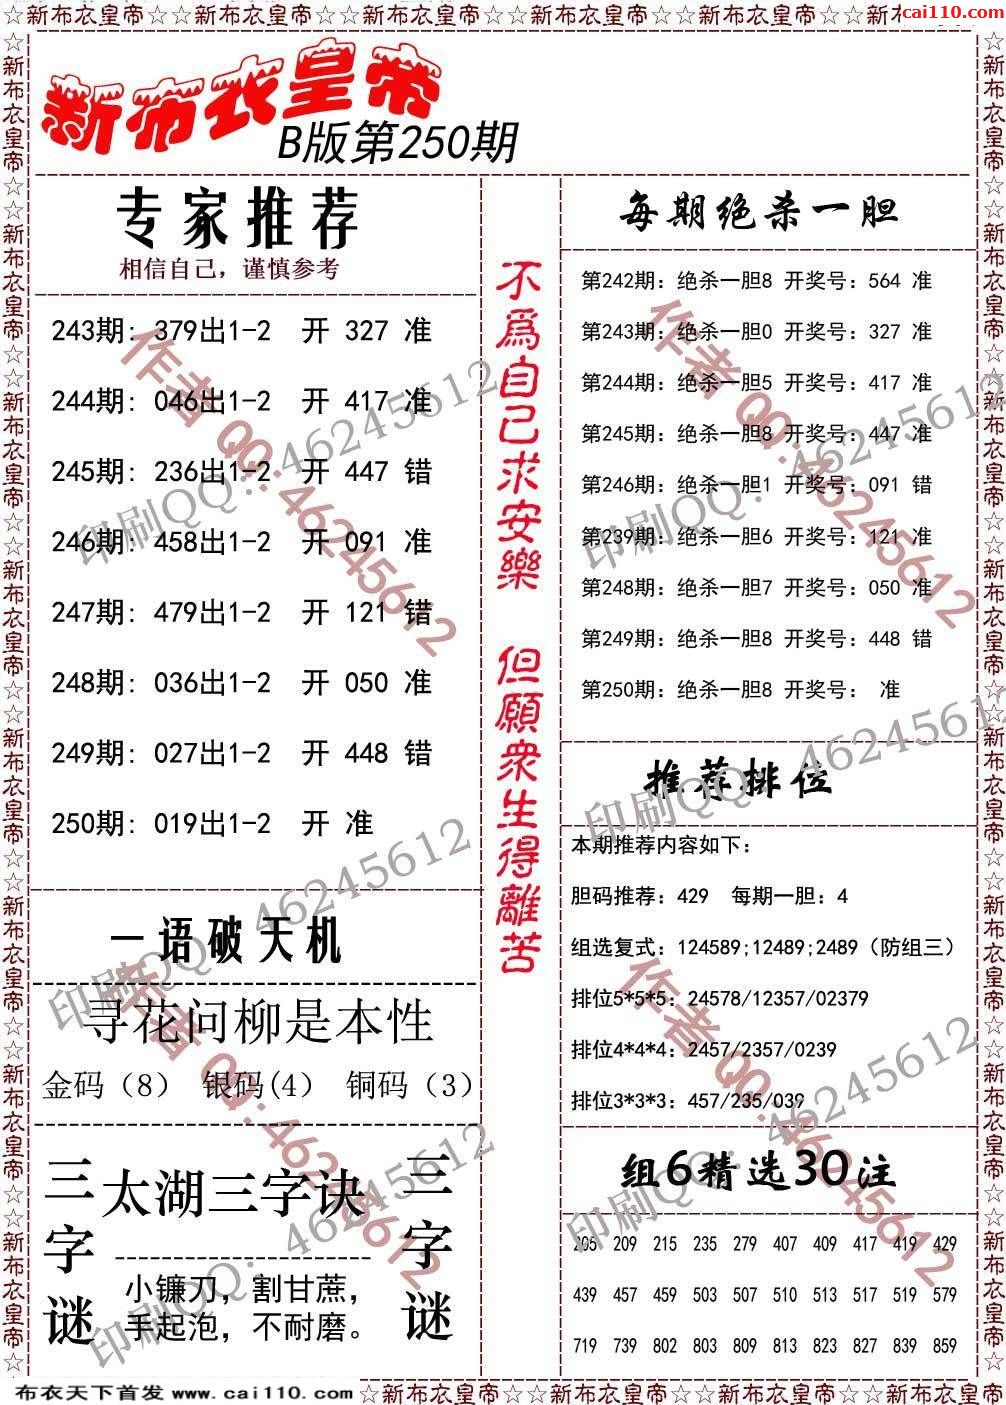 ☆新布衣皇帝☆☆新布衣皇帝☆☆新布衣皇帝☆☆新布衣皇帝☆☆新布衣皇帝☆☆新布衣皇帝☆☆新布衣
cai110.com
新布衣皇帝
B版第250期
专家推荐
相信自己，谨慎参考
243期: 379出1-2 开 327 准
244期: 046出1-2 开 417 准
245期: 236出1-2 开 447 错
246期: 458出1-2 开 091 准
247期: 479出1-2 开 121 错
248期: 036出1-2 开 050 准
249期: 027出1-2 开 448 错
250期: 019出1-2 开 准
一语破天机
寻花问柳是本性
金码（8） 银码(4） 铜码（3）
三字谜
太湖三字诀
小镰刀，割甘蔗，
手起泡，不耐磨。
三字谜
不爲自己求安樂 但願衆生得離苦
每期绝杀一胆
第242期：绝杀一胆8 开奖号：564 准
第243期：绝杀一胆0 开奖号：327 准
第244期：绝杀一胆5 开奖号：417 准
第245期：绝杀一胆8 开奖号：447 准
第246期：绝杀一胆1 开奖号：091 错
第239期：绝杀一胆6 开奖号：121 准
第248期：绝杀一胆7 开奖号：050 准
第249期：绝杀一胆8 开奖号：448 错
第250期：绝杀一胆8 开奖号： 准
推荐排位
本期推荐内容如下：
胆码推荐：429 每期一胆：4
组选复式：124589;12489;2489（防组三）
排位5*5*5：24578/12357/02379
排位4*4*4：2457/2357/0239
排位3*3*3：457/235/039
组6精选30注
205 209 215 235 279 407 409 417 419 429
439 457 459 503 507 510 513 517 519 579
719 739 802 803 809 813 823 827 839 859
作者 QQ:46245612
印刷QQ：46245612
作者 QQ:46245612
印刷QQ：46245612
作者 QQ:46245612
印刷QQ：46245612
作者 QQ:46245612
印刷QQ：46245612
印刷QQ：46245612
印刷QQ：46245612
布衣天下首发 www.cai110.com
☆新布衣皇帝☆☆新布衣皇帝☆☆新布衣皇帝☆☆新布衣皇帝☆